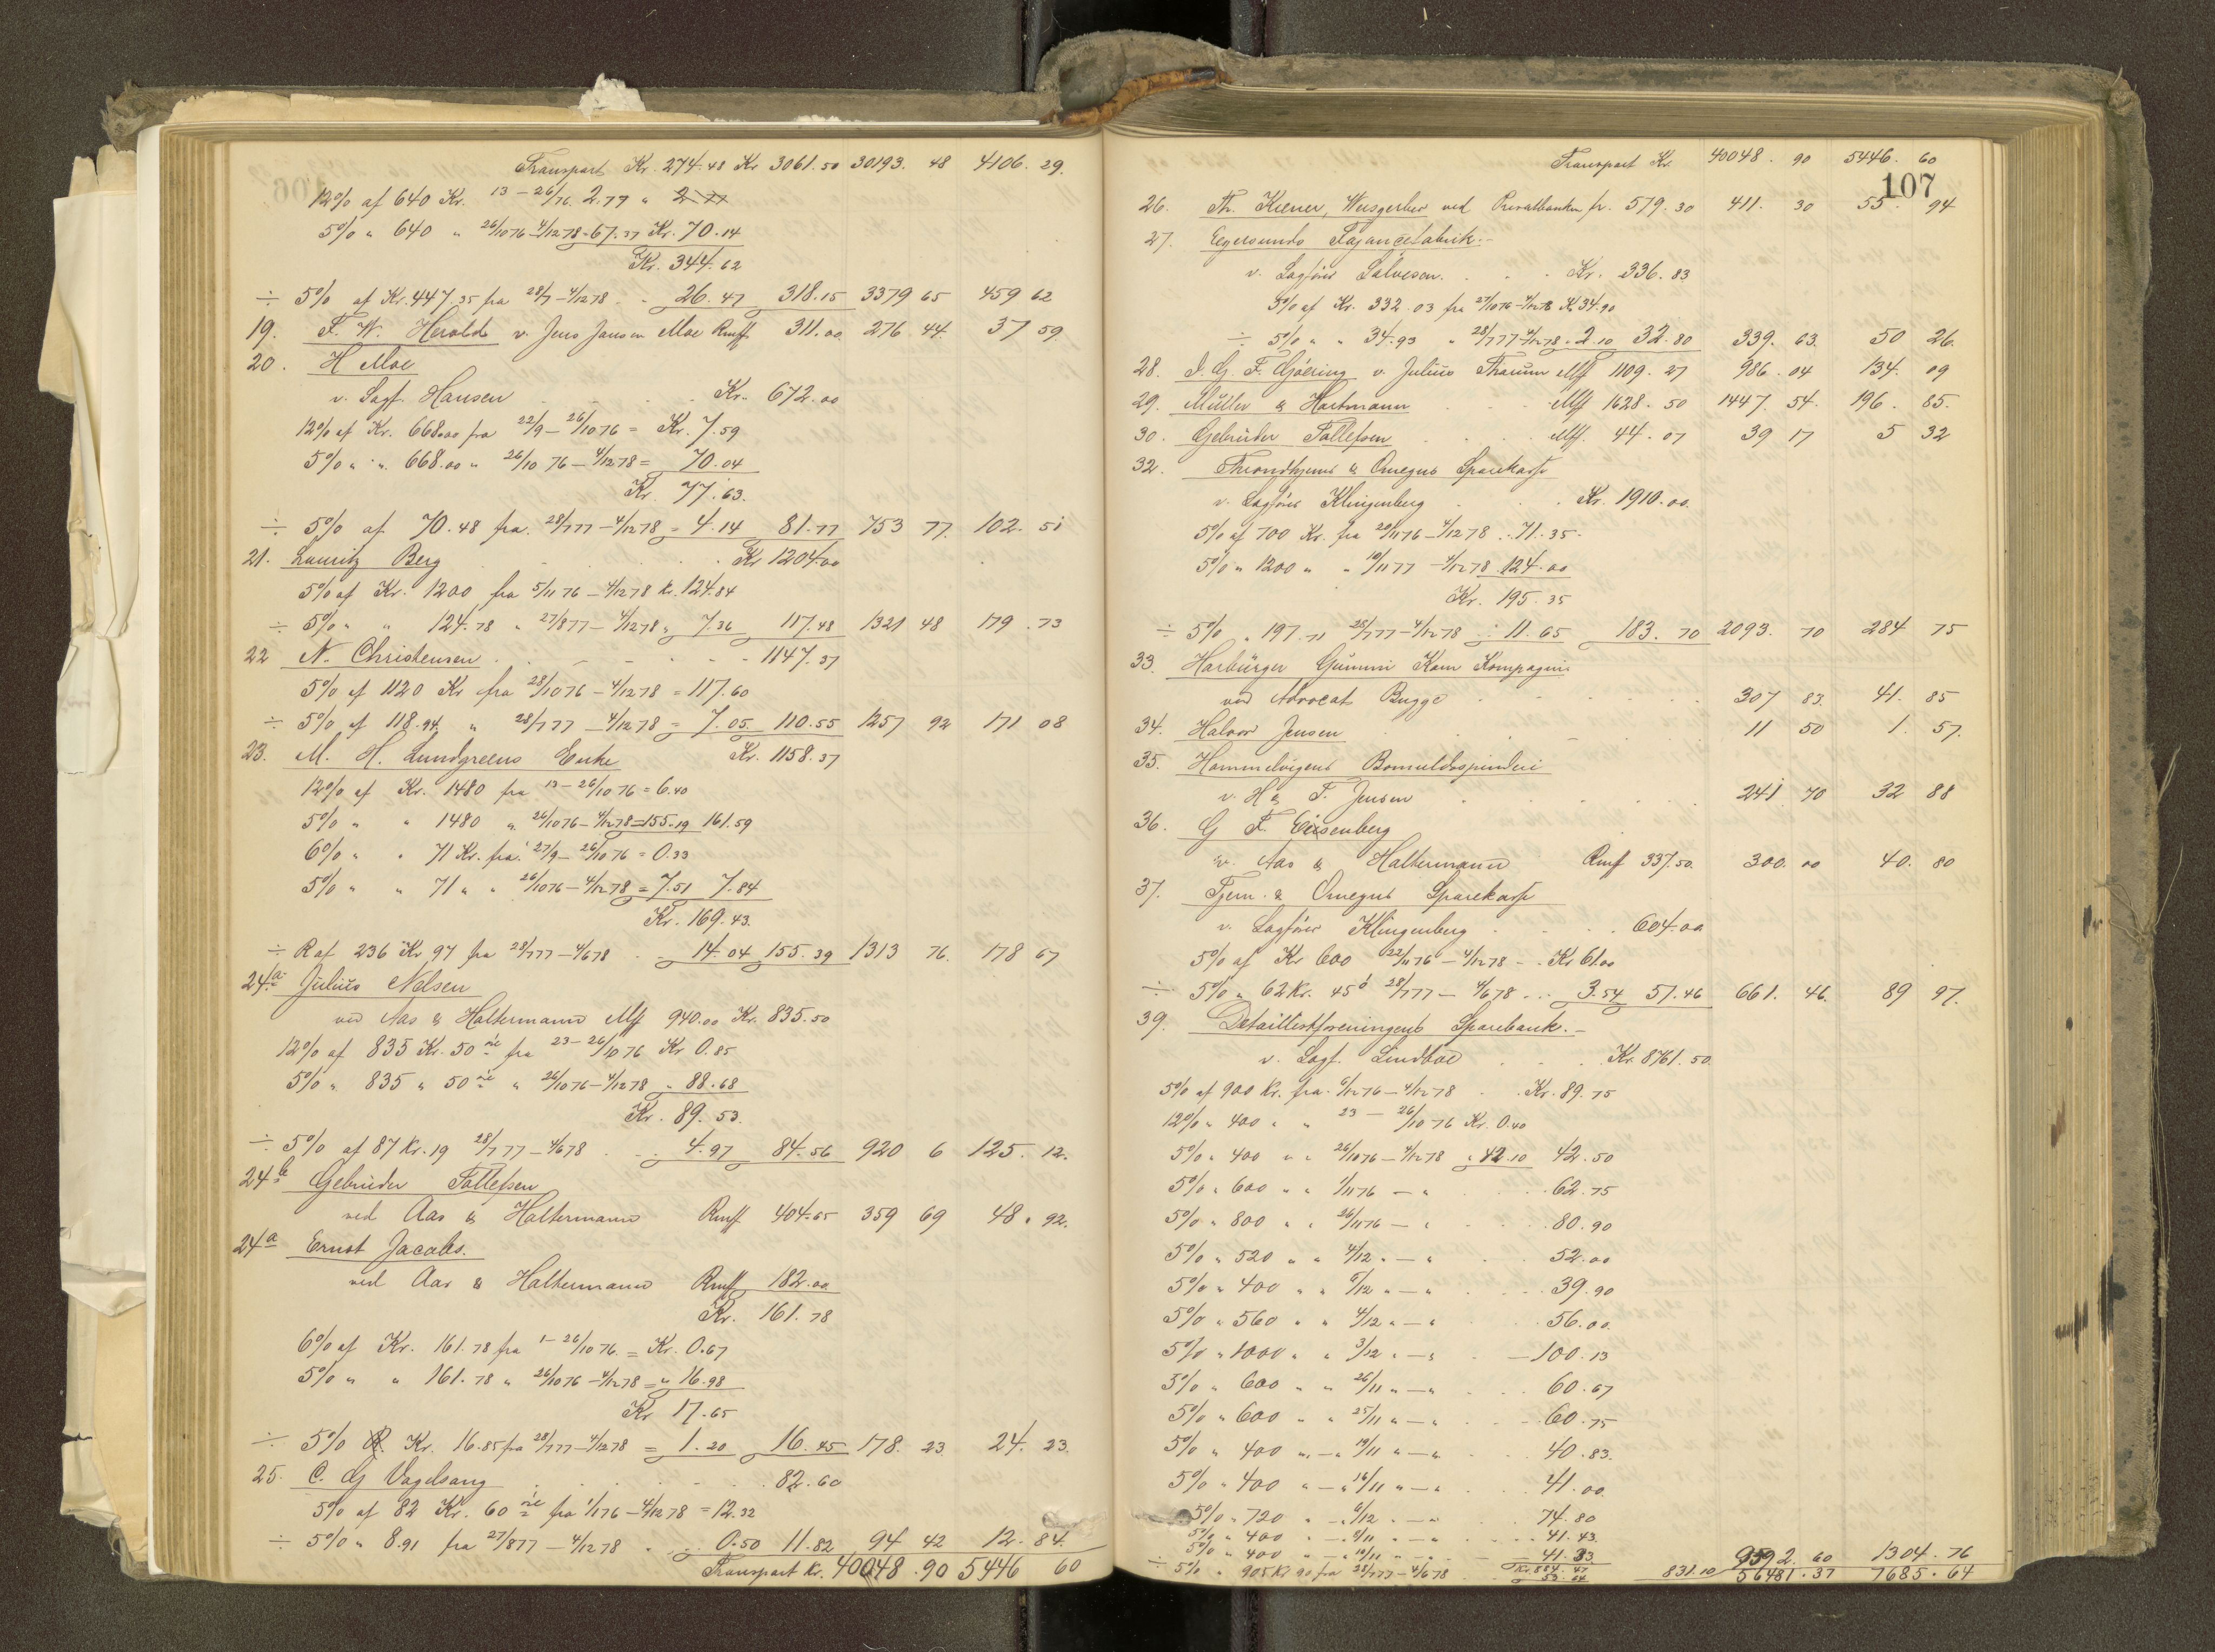 Transport Kr. 274.48 Kr 3061.50 30193. 48 4106. 29.
12% af 640 Kr. 13-26/76. 2.77 " 2.77
5% " 640 " 26/1076-4/1278 = 67.37 Kr. 70.14
Kr. 344.62
÷ 5% af Kr. 447.35 fra 28/7-4/1278 . " 26.47 318.15 3379 65 459 62
19. F. W. Herold v. Jens Jansen Moe Rmf 311.00 276.44. 37 59
20. H Moe
v. Sagf. Hansen Kr. 672.00
12% af Kr. 668.00 fra 22/9-26/1076 = Kr. 7.59
5% " " 668.00 " 26/10 76-4/1278 = 70.04
Kr. 77.63.
÷ 5% af 70.48 fra 28/777-4/1278 = 4.14 81.77 753 77. 102. 51
21. Lauritz Berg Kr 1204.00
5% af Kr. 1200 fra 5/1176-4/1278 Kr. 124.84
÷ 5% " " 124.78 " 27/877-4/1278 " 7.36 117.48 1321 48 179.73
22 N. Christensen 1147.37
5% af 1120 Kr fra 28/1076-4/1278 = 117.60
÷ 5% af 118.94 " 28/777-4/1278 = 7.05 110.55 1257 92 171 08
23. M. H. Lundgreens Enke Kr. 1158.37
12% af Kr. 1480 fra 13-26/1076 = 6.40
5% " " 1480 " 26/1076-4/1278 = 155.19 161.59
6% " " 71 Kr. fra 27/9-26/1076 = 0.33
5% " " 71 " " 26/1076-4/1278 = 7.51 7.84
Kr. 169.43.
÷ R af 236 Kr 97 fra 28/777-4/678 . . 14.04 155.39 1313 76. 178 67
24a Julius Nelsen
ved Aas & Haltermann Mf 940.00 Kr. 835.50
12% af 835 Kr. 50 øre fra 23-26/1076 Kr 0.85
5% " 835 " 50 øre " 26/1076-4/1278 " 88.68
Kr. 89.53.
÷ 5% af 87 Kr. 19 28/777-4/678 . . 4.97 84.56 920 6 125. 12.
24b Gebrüder Tollefsen
ved Aas & Haltermann Rmf 404.65 359 69 48. 92.
24a Ernst Jacobs.
ved Aas & Haltermann Rmf 182.00
Kr. 161.78
6% af Kr. 161.78 fra 1-26/1076. = Kr. 0.67
5% " " 161.78 " 26/1076-4/1278 = " 16.98
Kr 17.65
÷ 5% Kr. 16.85 fra 28/777-4/1278 = 1.20 16.45 178. 23. 24. 23.
25. C. G Vogelsang 82.60
5% af 82 Kr. 60 øre fra 1/176-4/1278 = 12.32
÷ 5% " 8.91 fra 27/877-4/1278 . . 0.50 11.82 94 42 12. 84.
Transport Kr. 40048.90 5446 60
Transport Kr. 40048. 90 5446. 60
107
26. Th. Kiener, Weisgerber ved Privatbanken fr. 579.30 411. 30 55. 94
27. Egersunds Fajancefabrik.
v. Sagfører Salvesen. Kr. 336.83
5% af Kr. 332.03 fra 27/1076-4/1278 K 34.90
÷ 5% " " 34.93 " 28/777-4/1278 " 2.10 32.80 339. 63. 50 26.
28. I. G. F. Gjöering v. Julius Thaum Mf 1109.27 986.04 134. 09
29. Müller & Hartmann Mf 1628.50 1447. 54. 196. 85.
30. Gebrüder Tollefsen Mf. 44.07 39 17 5 32
32. Throndhjems & Omegns Sparekasse
v. Sagfører Klingenberg Kr. 1910.00.
5% af 700 Kr. fra 20/1176-4/1278 . 71.35.
5% " 1200 " " 10/1177-4/1278 124.00
Kr. 195.35
÷ 5% " 197.71 25/777-4/1278 ÷ 11.65 183.70 2093. 70 284 75
33. Harbürger Gümmi Kam Kompagni
ved Advocat Bugge 307 83. 41. 85
34. Halvor Jensen 11 50 1. 57.
35. Hommelvigens Bomuldsspinderi
v. H & F. Jensen 241 70 32 88
36. G F. Eisenberg
v. Aas & Haltermann Rmf 337.50. 300. 00 40. 80
37. Tjem. & Omegns Sparekasse
v. Sagfører Klingenberg 604.00
5% af Kr 600 22/1176-4/1278 - . Kr 61.00
÷ 5% " 62 Kr. 45 ø 28/777-4/678 . . 3.54 57.46 661. 46. 89 97.
39. Detaillistforeningens Sparebank.-
v. Sagf. Lindboe Kr. 8761.50.
5% af 900 Kr. fra 6/1276-4/1278 Kr. 89.75
12% " 400 " " 23-26/1076 Kr. 0.40
5% " 400 " " 26/1076-4/1278 " 42.10 42.50
5% " 600 " " 1/1176 - " 62.75
5% " 800 " " 26/1176 - " 80.90
5% " 520 " " 4/12 " - " 52.00
5% " 400 " " 8/12 " - " 39.90
5% " 560 " " 4/12 " - " 56.00.
5% " 1000 " " 3/12 " - " 100.13
5% " 600 " " 26/11 " - " 60.67
5% " 600 " " 25/11 " - " 60.75
5% " 400 " - " 19/11 " - " 40.83.
5% " 400 " - " 16/11 " - " 41.00.
5% " 720 " - " 6/12 " - " 74.80
5% " 400 " - " 8/11 " - " 41.43.
5% " 400 " - " 10/11 " - " 41.33.
÷ 5% " 905 Kr 90 fra 28/777-4/678 Kr. 884.47 53.64 831.10 9592. 60 1304. 76
56481.37 7685.64